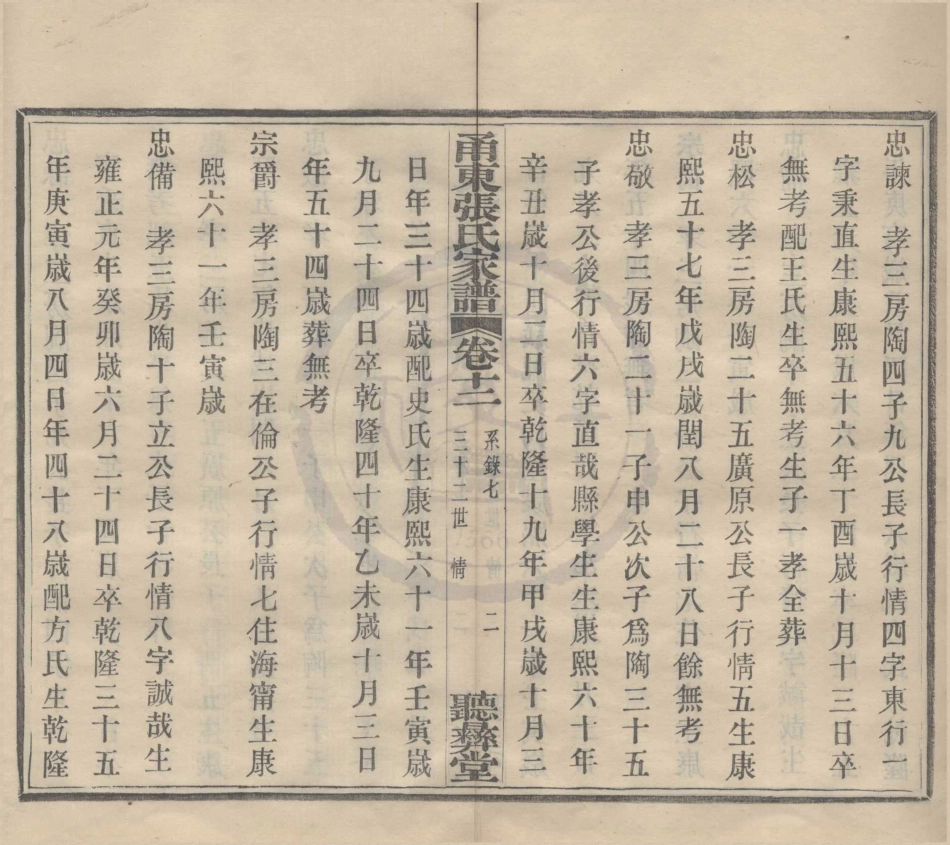 忠諫 孝三房陶四子九公長子行情四字東行一
字秉直生康熙五十六年丁酉歲十月十三日卒
無考配王氏生卒無考生子一孝全葬
忠松 孝三房陶二十五廣原公長子行情五生康
熙五十七年戊戌歲閏八月二十八日餘無考
忠敬 孝三房陶二十一子申公次子爲陶三十五
子孝公後行情六字直哉縣學生生康熙六十年
辛丑歲十月二日卒乾隆十九年甲戌歲十月三
甬東張氏家譜 卷十二 系錄七 三十二世 情 二 聽彝堂
日年三十四歲配史氏生康熙六十一年壬寅歲
九月二十四日卒乾隆四十年乙未歲十月三日
年五十四歲葬無考
宗爵 孝三房陶三在倫公子行情七住海甯生康
熙六十一年壬寅歲
忠備 孝三房陶十子立公長子行情八字誠哉生
雍正元年癸卯歲六月二十四日卒乾隆三十五
年庚寅歲八月四日年四十八歲配方氏生乾隆